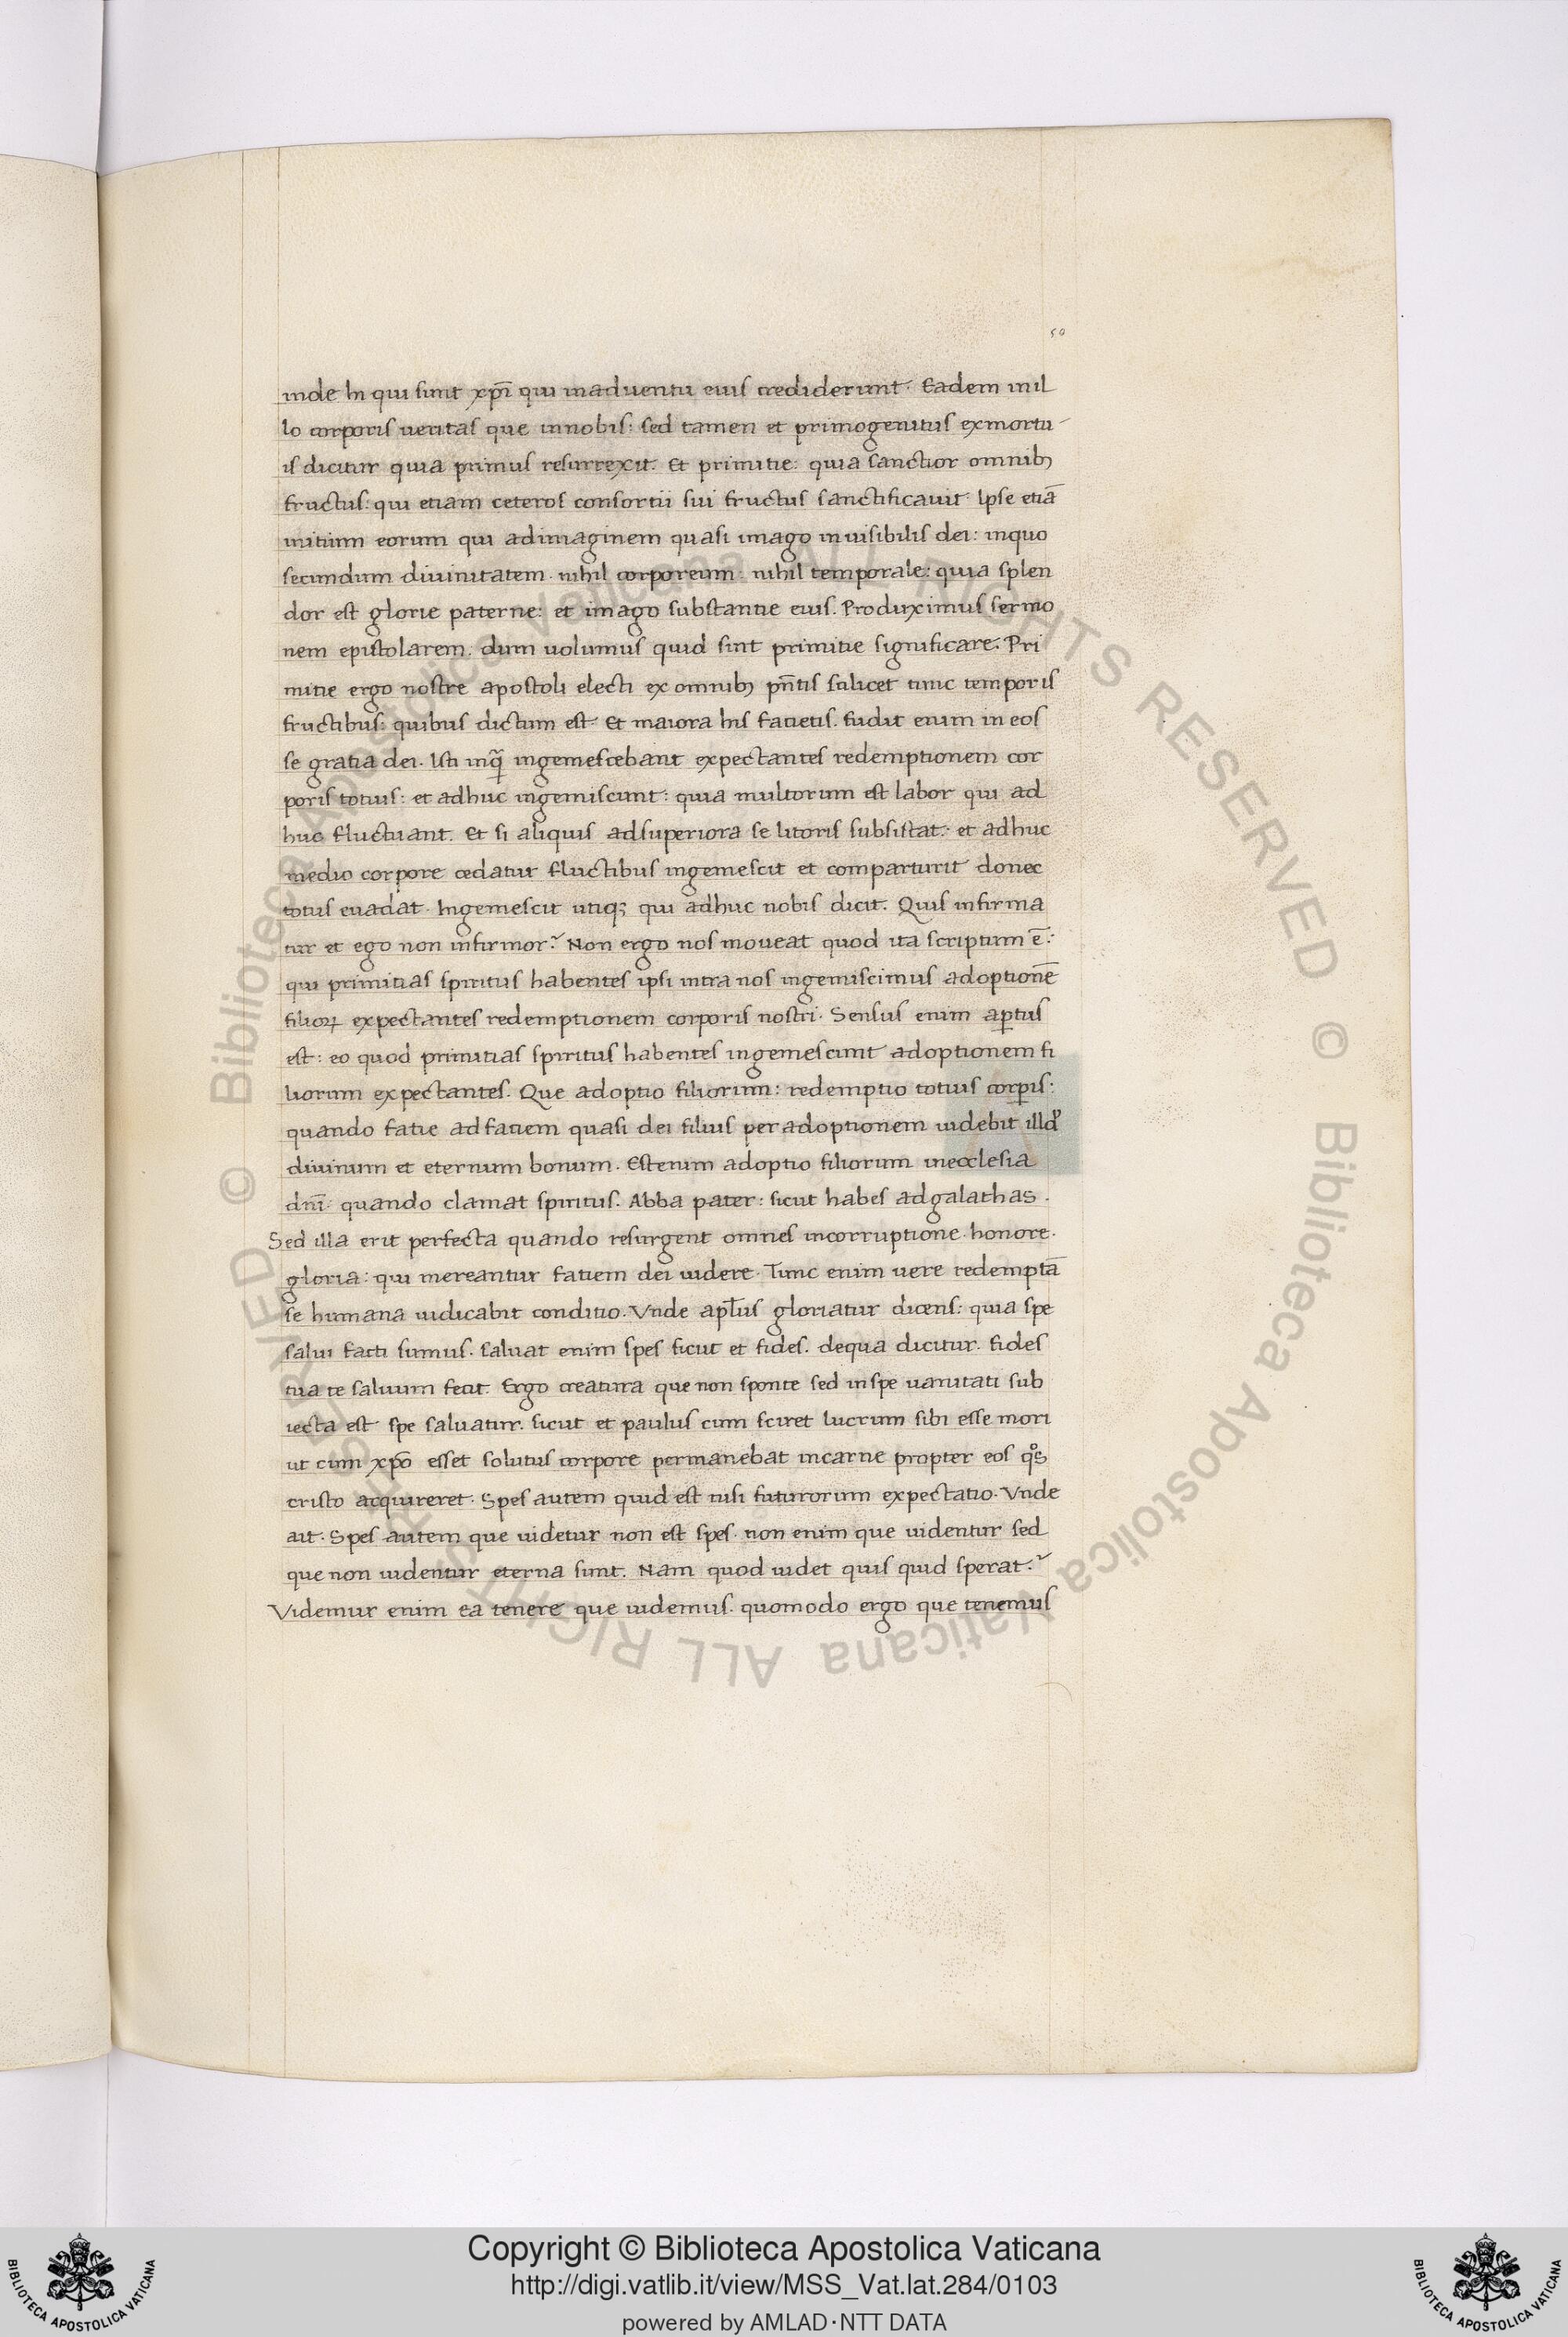 50
inde hi qui sunt xpi̅ qui inadventu eius crediderunt· Eadem inil
lo corporis veritas que innobis: sed tamen et primogenitus exmortu-
is dicitur quia primus resurrexit. Et primitie: quia sanctior omnibꝫ
fructus: qui etiam ceteros consortii sui fructus sanctificavit· Ipse etia̅
initium eorum qui adimaginem quasi imago invisibilis dei: inquo
secundum divinitatem· nihil corporeum: nihil temporale: quia splen
dor est glorie paterne: et imago substantie eius. Produximus sermo
nem epistolarem. dum volumus quid sint primitie significare. Pri
mitie ergo nostre apostoli electi ex omnibꝫ pn̅tis scilicet tunc temporis
fructibus: quibus dictum est· Et maiora his facietis. fudit enim in eos
se gratia dei. Isti inqͣ ingemescebant expectantes redemptionem cor
poris totius: et adhuc ingemiscunt: quia multorum est labor qui ad
huc fluctuant. Et si aliquis adsuperiora se litoris subsistat: et adhuc
medio corpore cedatur fluctibus ingemescit et comparturit donec
totus evadat· Ingemescit utiqꝫ qui adhuc nobis dicit. Quis infirma
tur et ego non infirmor? Non ergo nos moveat quod ita scriptum e̅:
qui primitias spiritus habentes ipsi intra nos ingemiscimus adoptione̅
filioꝝ expectantes redemptionem corporis nostri· Sensus enim aꝑtus
est: eo quod primitias spiritus habentes ingemescunt adoptionem fi
liorum expectantes. Que adoptio filiorum: redemptio totius corꝑis:
quando facie adfaciem quasi dei filius per adoptionem videbit illd̓
divinum et eternum bonum. Estenim adoptio filiorum inecclesia
dni̅: quando clamat spiritus. Abba pater: sicut habes adgalathas.
Sed illa erit perfecta quando resurgent omnes incorruptione· honore·
gloria: qui mereantur faciem dei videre· Tunc enim vere redempta̅
se humana vidicabit conditio. Vnde apl̅us gloriatur dicens: quia spe
salvi facti sumus. salvat enim spes sicut et fides. dequa dicitur. fides
tua te salvum fecit. Ergo creatura que non sponte sed inspe vanitati sub
iecta est spe salvatur. sicut et paulus cum sciret lucrum sibi esse mori
ut cum xpo̅ esset solutus corpore permanebat incarne propter eos qͦs
cristo acquireret· Spes autem quid est nisi futurorum expectatio· Vnde
ait· Spes autem que videtur non est spes· non enim que videntur sed
que non videntur eterna sunt. Nam quod videt quis quid sperat?
Videmur enim ea tenere que videmus. quomodo ergo que tenemus
© Biblioteca Apostolica Vaticana ALL RIGHTS RESERVED © Biblioteca Apostolica Vaticana ALL RIGHTS RESERVED
Copyright © Biblioteca Apostolica Vaticana
http://digi.vatlib.it/view/MSS_Vat.lat.284/0103
powered by AMLAD·NTT DATA
BIBLIOTECA APOSTOLICA VATICANA
BIBLIOTECA APOSTOLICA VATICANA